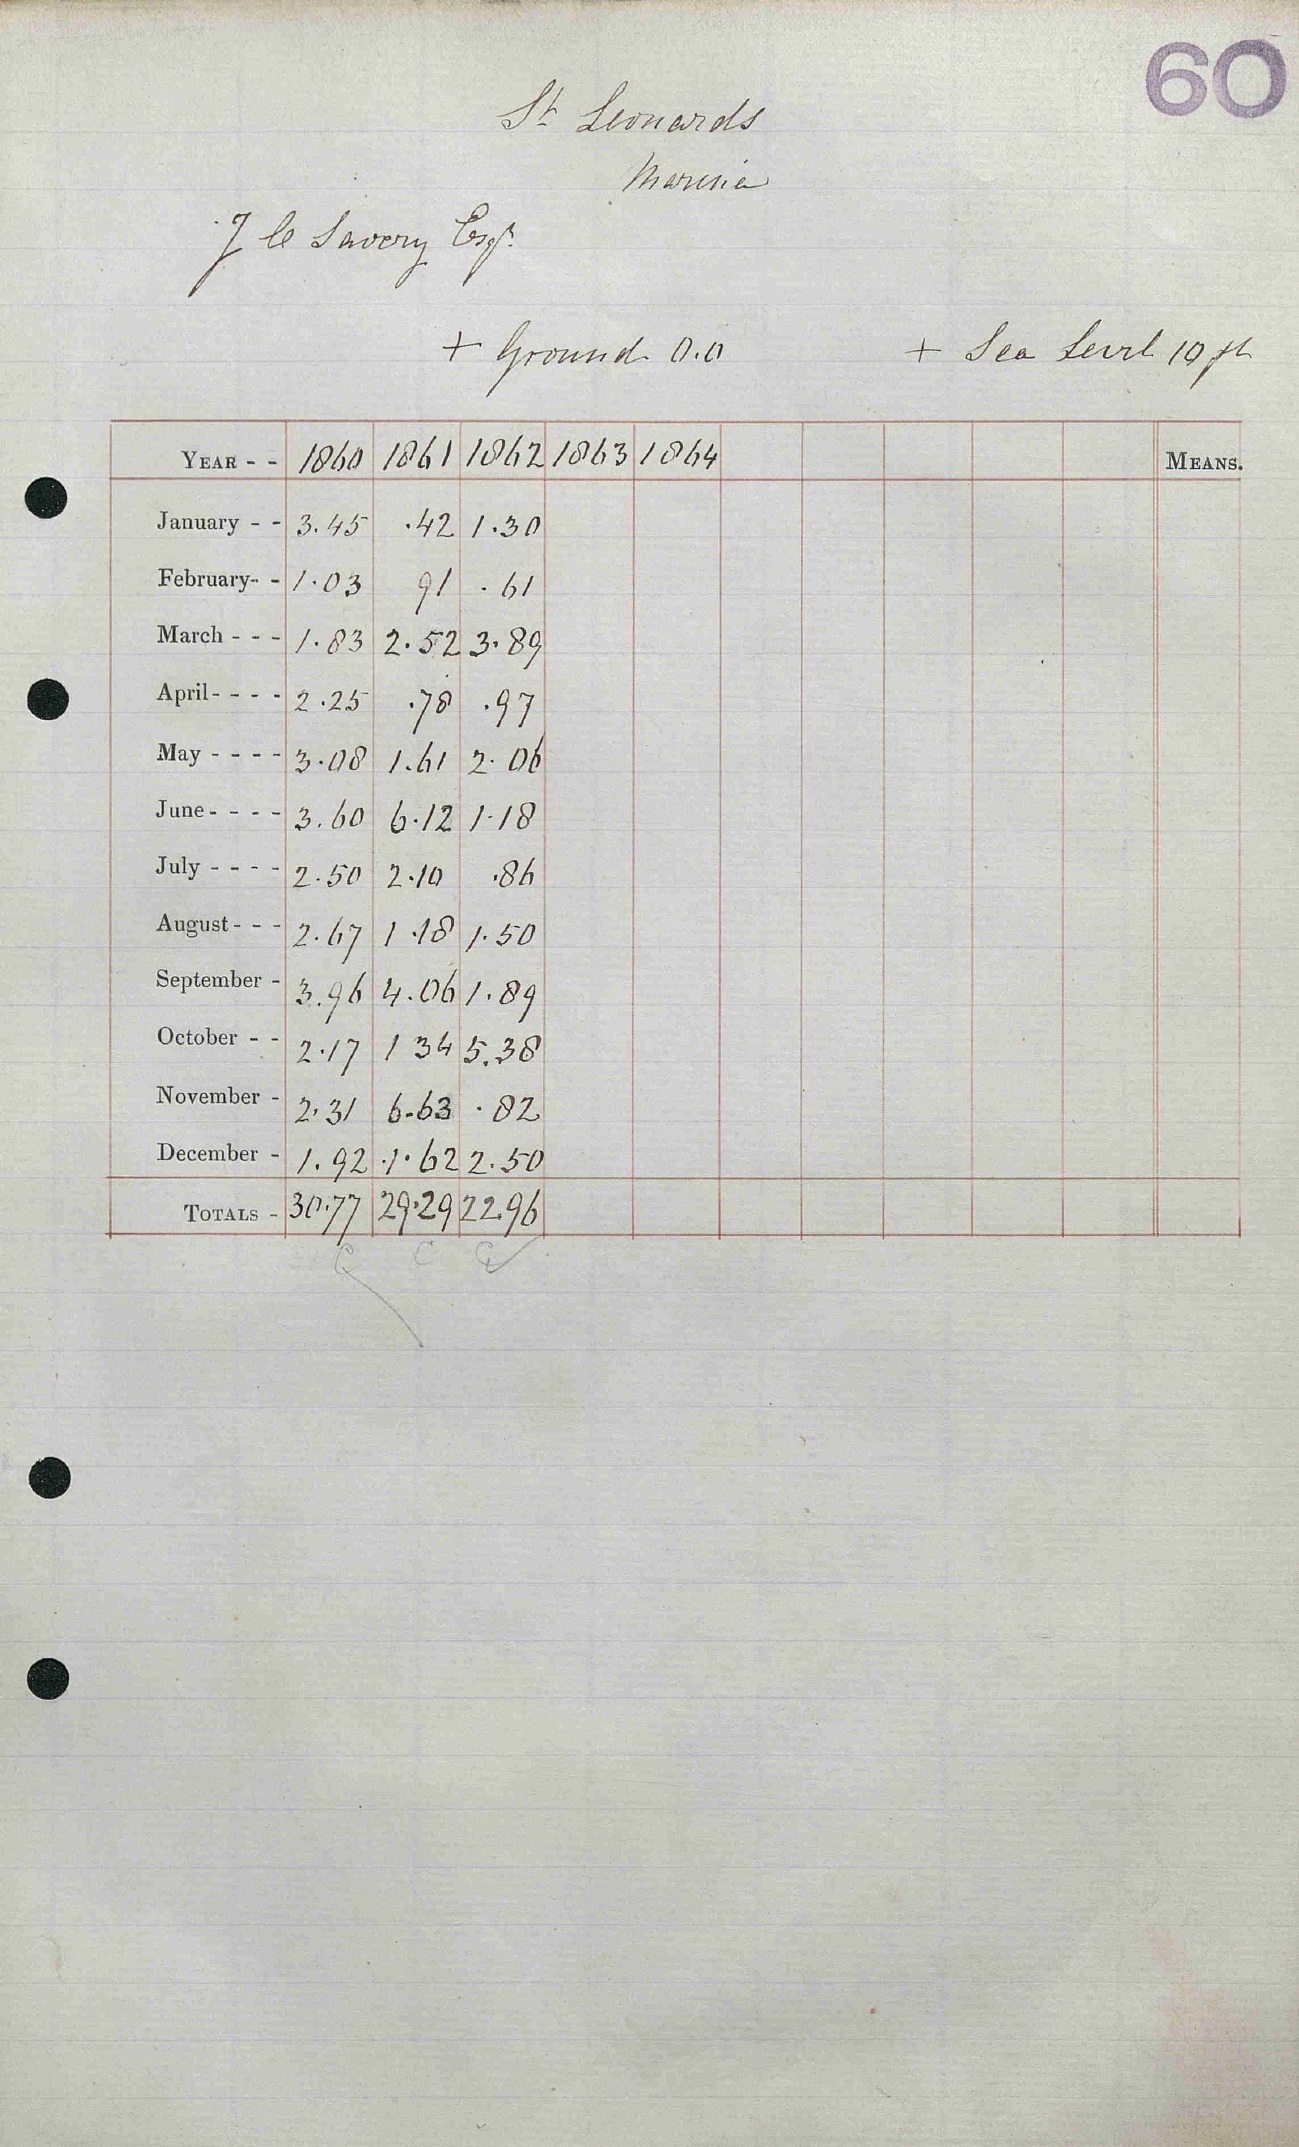 60
St Leonards
Marina
J C Savery Esqr.
+ Ground 0.0 + Sea Level 10 ft
YEAR - - 1860 1861 1862 1863 1864 MEANS.
January - - 3.45 .42 1.30
February- - 1.03 91 .61
March - - - 1.83 2.52 3.89
April- - - - 2.25 .78 .97
May - - - - 3.08 1.61 2.06
June- - - - 3.60 6.12 1.18
July - - - - 2.50 2.10 .86
August- - - 2.67 1.18 1.50
September - 3.96 4.06 1.89
October - - 2.17 1 34 5.38
November - 2.31 6.63 .82
December - 1.92 1.62 2.50
TOTALS - 30.77 29.29 22.96
C C C